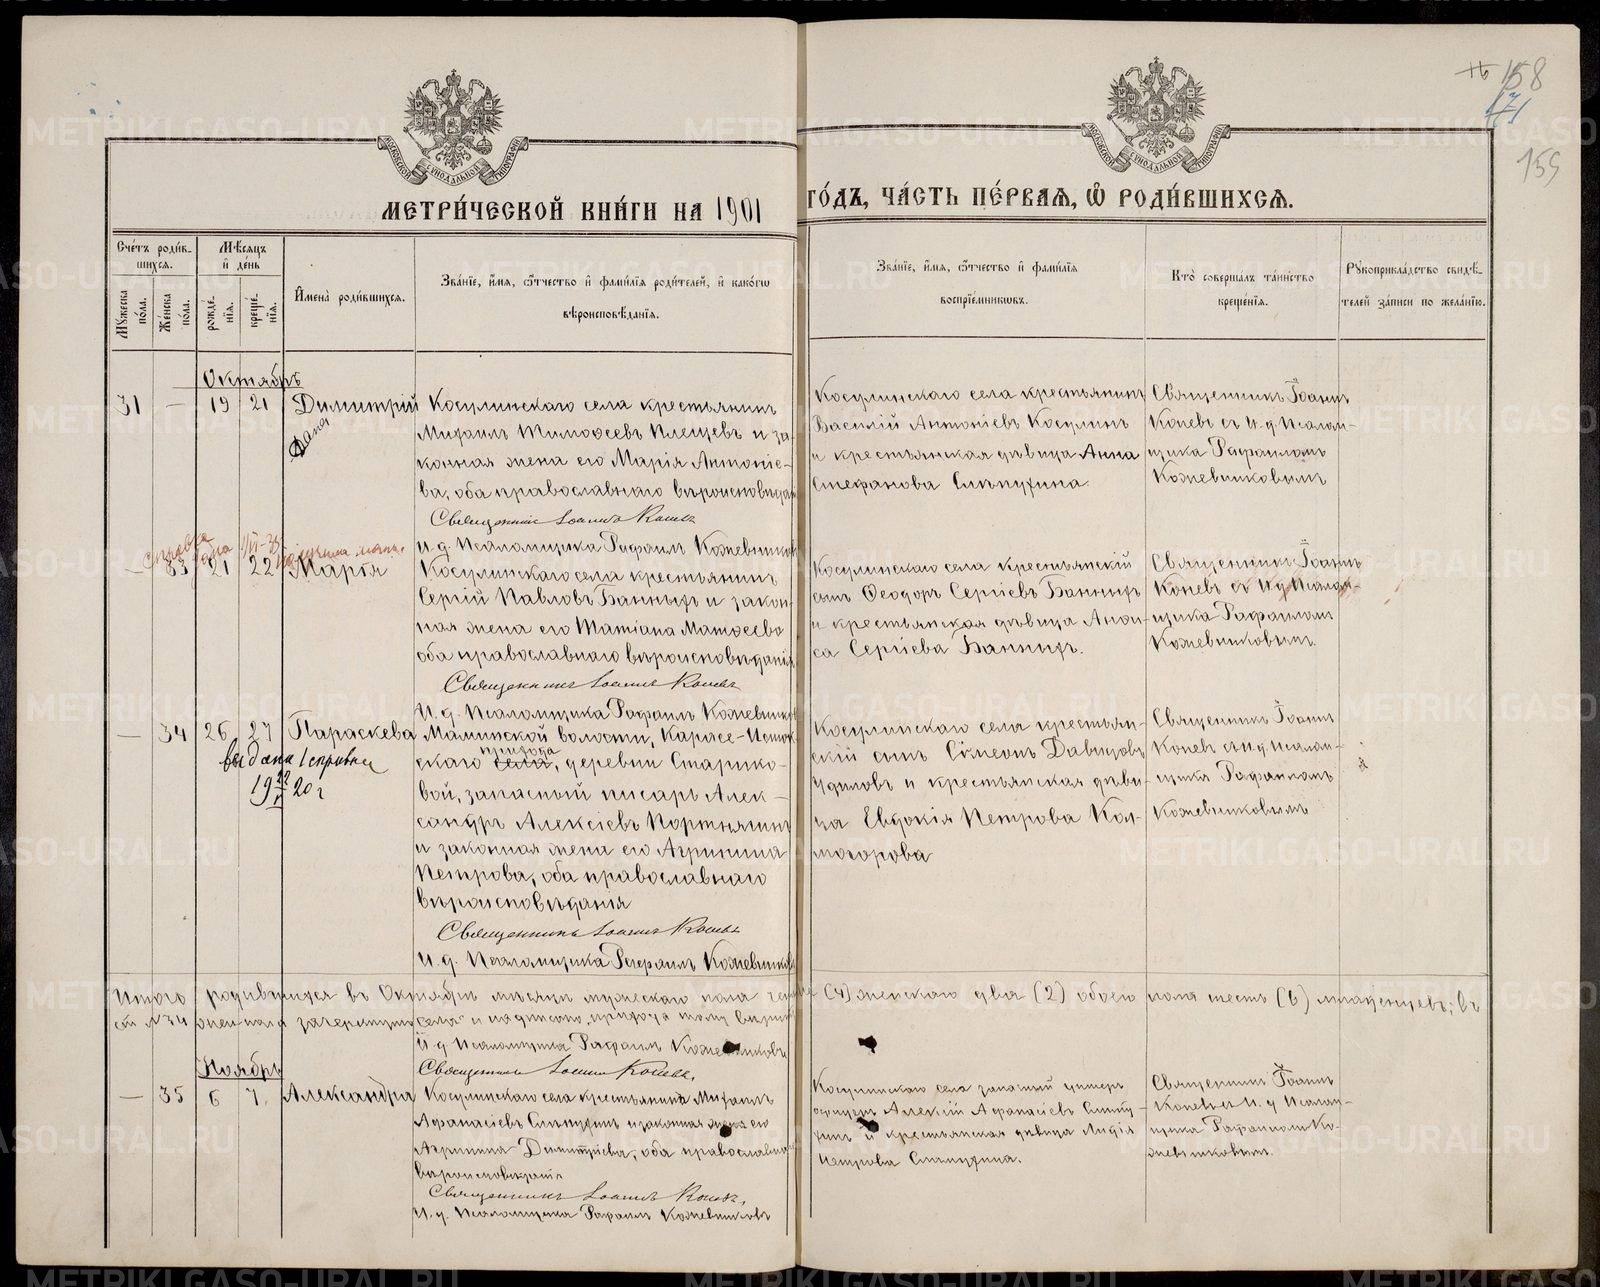 158
171
159
МОСКОВСКОЙ СѴНОДАЛЬНОЙ ТИПОГРАФІИ
МОСКОВСКОЙ СѴНОДАЛЬНОЙ ТИПОГРАФІИ
МЕТРИ́ЧЕСКОЙ КНИ́ГИ НА 1901 ГО́ДЪ, ЧА́СТЬ ПЕ́РВАѦ, Ѡ҆ РОДИ́ВШИХСѦ.
Сче́тъ роди́в-
шихсѧ.
Мꙋ́жеска по́ла.
Же́нска по́ла.
Мѣ́сѧцъ
и҆ де́нь
рожде́-
нїѧ.
креще́-
нїѧ.
И҆мена̀ роди́вшихсѧ.
Зва́нїе, и҆́мѧ, ѻ҆́тчество и҆ фами́лїѧ роди́телей, и҆ како́гѡ
вѣроисповѣ́данїѧ.
Зва́нїе, и҆́мѧ, ѻ҆́тчество и҆ фами́лїѧ
воспрїе́мникѡвъ.
Кто̀ соверша́лъ та́инство
креще́нїѧ.
Рꙋкоприкла́дство свидѣ́-
телей за́писи по жела́нїю.
Октябрь
31 — 19 21 Димитрій
Косулинскаго села крестьянинъ
Михаилъ Тимоѳеевъ Плещевъ и за-
конная жена его Марія Антоніе-
ва, оба православнаго вѣроисповѣдан
Священникъ Іоаннъ Коневъ
И. д. Псаломщика Рафаилъ Кожевников
Косулинскаго села крестьянинъ
Василій Антоніевъ Косулинъ
и крестьянская дѣвица Анна
Стефанова Слѣпухина
Священникъ Іоаннъ
Коневъ съ И. д. Псалом-
щика Рафаиломъ
Кожевниковымъ
Справка дана
— 33 21 22 Марія
Косулинскаго села крестьянинъ
Сергій Павловъ Банныхъ и закон-
ная жена его Татіана Матѳеева
оба православнаго вѣроисповѣданія
Священникъ Іоаннъ Коневъ
И. д. Псаломщика Рафаилъ Кожевников
Косулинскаго села крестьянскій
сынъ Ѳеодоръ Сергіевъ Банныхъ
и крестьянская дѣвица Анѳи-
са Сергіева Банныхъ.
Священникъ Іоаннъ
Коневъ съ И. д. Псалом-
щика Рафаиломъ
Кожевниковымъ.
— 34 26 27 Параскева
выдана справка
19 22/V 20 г
Маминской волости, Карасе-Исток
прихода
скаго села, деревни Старико-
вой, запасный писарь Алек-
сандръ Алексіевъ Портнягинъ
и законная жена его Агрипина
Петрова, оба православнаго
вѣроисповѣданія
Священникъ Іоаннъ Коневъ
И. д. Псаломщика Рафаилъ Кожевников
Косулинскаго села крестьян-
скій сынъ Сѵмеонъ Давидовъ
Удиловъ и крестьянская дѣви-
ца Евдокія Петрова Кол-
могорова
Священникъ Іоаннъ
Коневъ съ И. д. Псалом-
щика Рафаиломъ
Кожевниковымъ
Итого родившихся въ Октябрѣ мѣсяцѣ мужескаго пола четыре (4) женскаго два (2) обоего пола шесть (6) младенцевъ; въ
ст. №34 зачеркнуто села и надписано, прихода тому вѣрить
И. д. Псаломщика Рафаилъ Кожевниковъ
Священникъ Іоаннъ Коневъ.
Ноябрь
— 35 6 7 Александра
Косулинскаго села крестьянинъ Михаилъ
Аѳанасіевъ Слѣпухинъ и законная жена его
Агрипина Димитріева, оба православнаго
вѣроисповѣданія
Священникъ Іоаннъ Коневъ.
И. д. Псаломщика Рафаилъ Кожевниковъ
Косулинскаго села запасный унтеръ
офицеръ Алексій Аѳанасіевъ Слѣпу-
хинъ и крестьянская дѣвица Лидія
Петрова Слѣпухина.
Священникъ Іоаннъ
Коневъ съ И. д Псалом-
щика Рафаиломъ Ко-
жевниковымъ.
METRIKI.GASO-URAL.RU